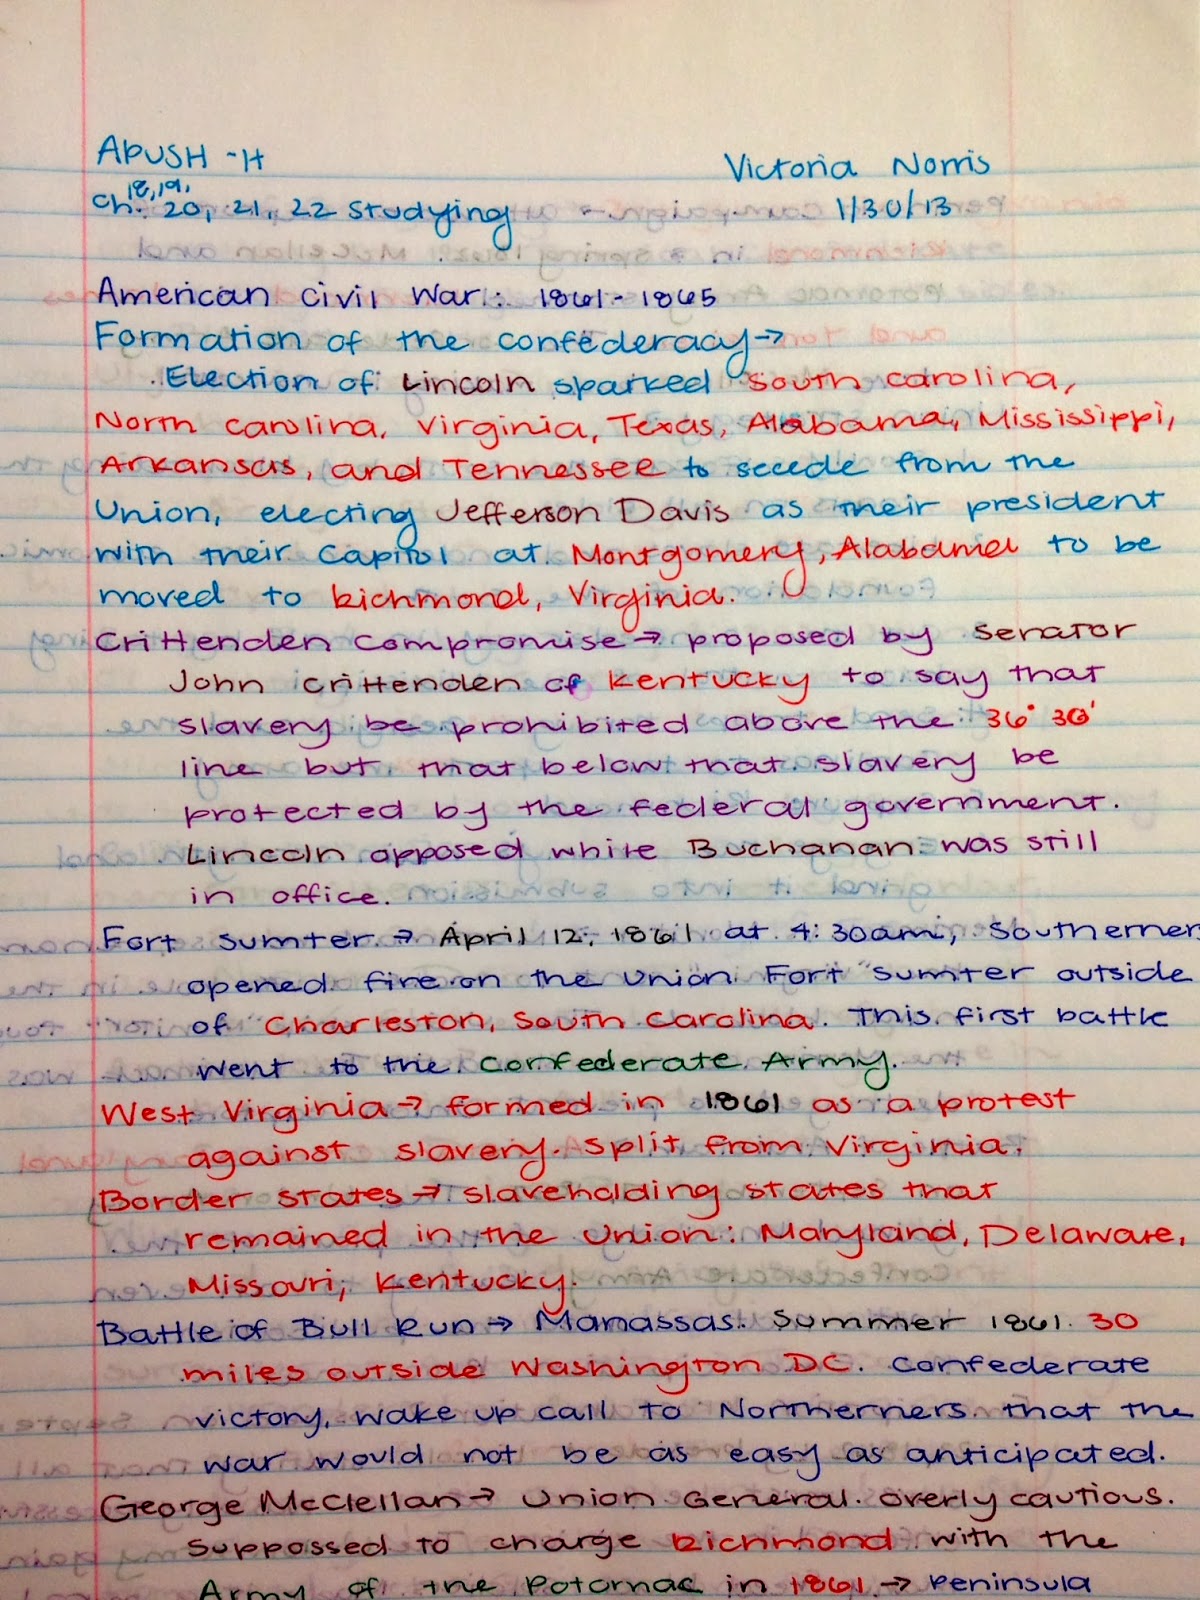 APUSH - H
Victoria Norris
18, 19,
Ch. 20, 21, 22 Studying
1/30/13
American Civil War: 1861-1865
Formation of the confederacy→
Election of Lincoln sparked South Carolina,
North Carolina, Virginia, Texas, Alabama, Mississippi,
Arkansas, and Tennessee to secede from the
Union, electing Jefferson Davis as their president
with their Capitol at Montgomery, Alabama to be
moved to Richmond, Virginia.
Crittenden Compromise → proposed by Senator
John Crittenden of Kentucky to say that
slavery be prohibited above the 36° 30'
line but that below that slavery be
protected by the federal government.
Lincoln opposed while Buchanan was still
in office.
Fort Sumter → April 12, 1861 at 4:30am, Southerners
opened fire on the Union Fort Sumter outside
of Charleston, South Carolina. This first battle
went to the Confederate Army.
West Virginia → formed in 1861 as a protest
against slavery. Split from Virginia.
Border states → slaveholding states that
remained in the Union: Maryland, Delaware,
Missouri, Kentucky.
Battle of Bull Run → Manassas. Summer 1861. 30
miles outside Washington DC. Confederate
victory, wake up call to Northerners that the
war would not be as easy as anticipated.
George McClellan → Union General. overly cautious.
Suppossed to charge Richmond with the
Army of the Potomac in 1861 → Peninsula